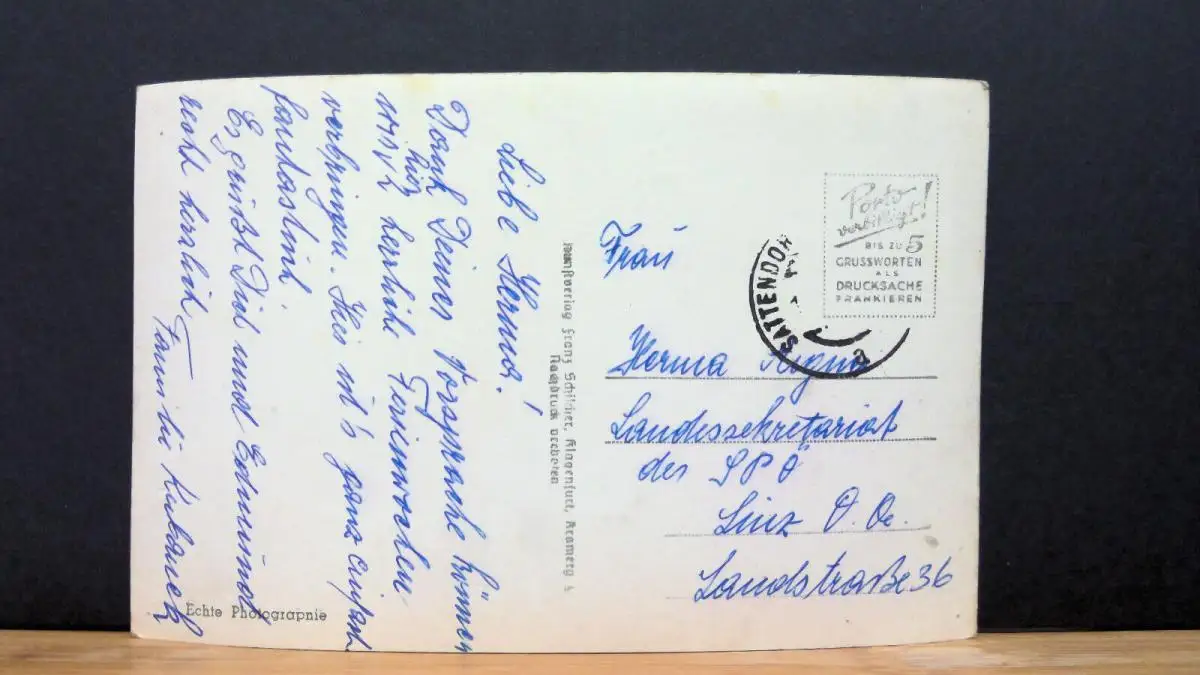 Liebe Herma!
Dank Deiner Vorsprache können
wir hier herrliche Ferienwochen
verbringen. Hier ist's ganz einfach
fantastisch.
Es grüßt Dich und Edmund
recht herzlich Familie
Echte Photographie
Kunstverlag Franz Schilcher, Klagenfurt, Kramerg 4
Nachdruck verboten
Porto
verbilligt!
BIS ZU 5
GRUSSWORTEN
ALS
DRUCKSACHE
FRANKIEREN
SATTENDOR
Frau
Herma
Landessekretariat
der SPÖ
Linz O. Oe.
Landstraße 36